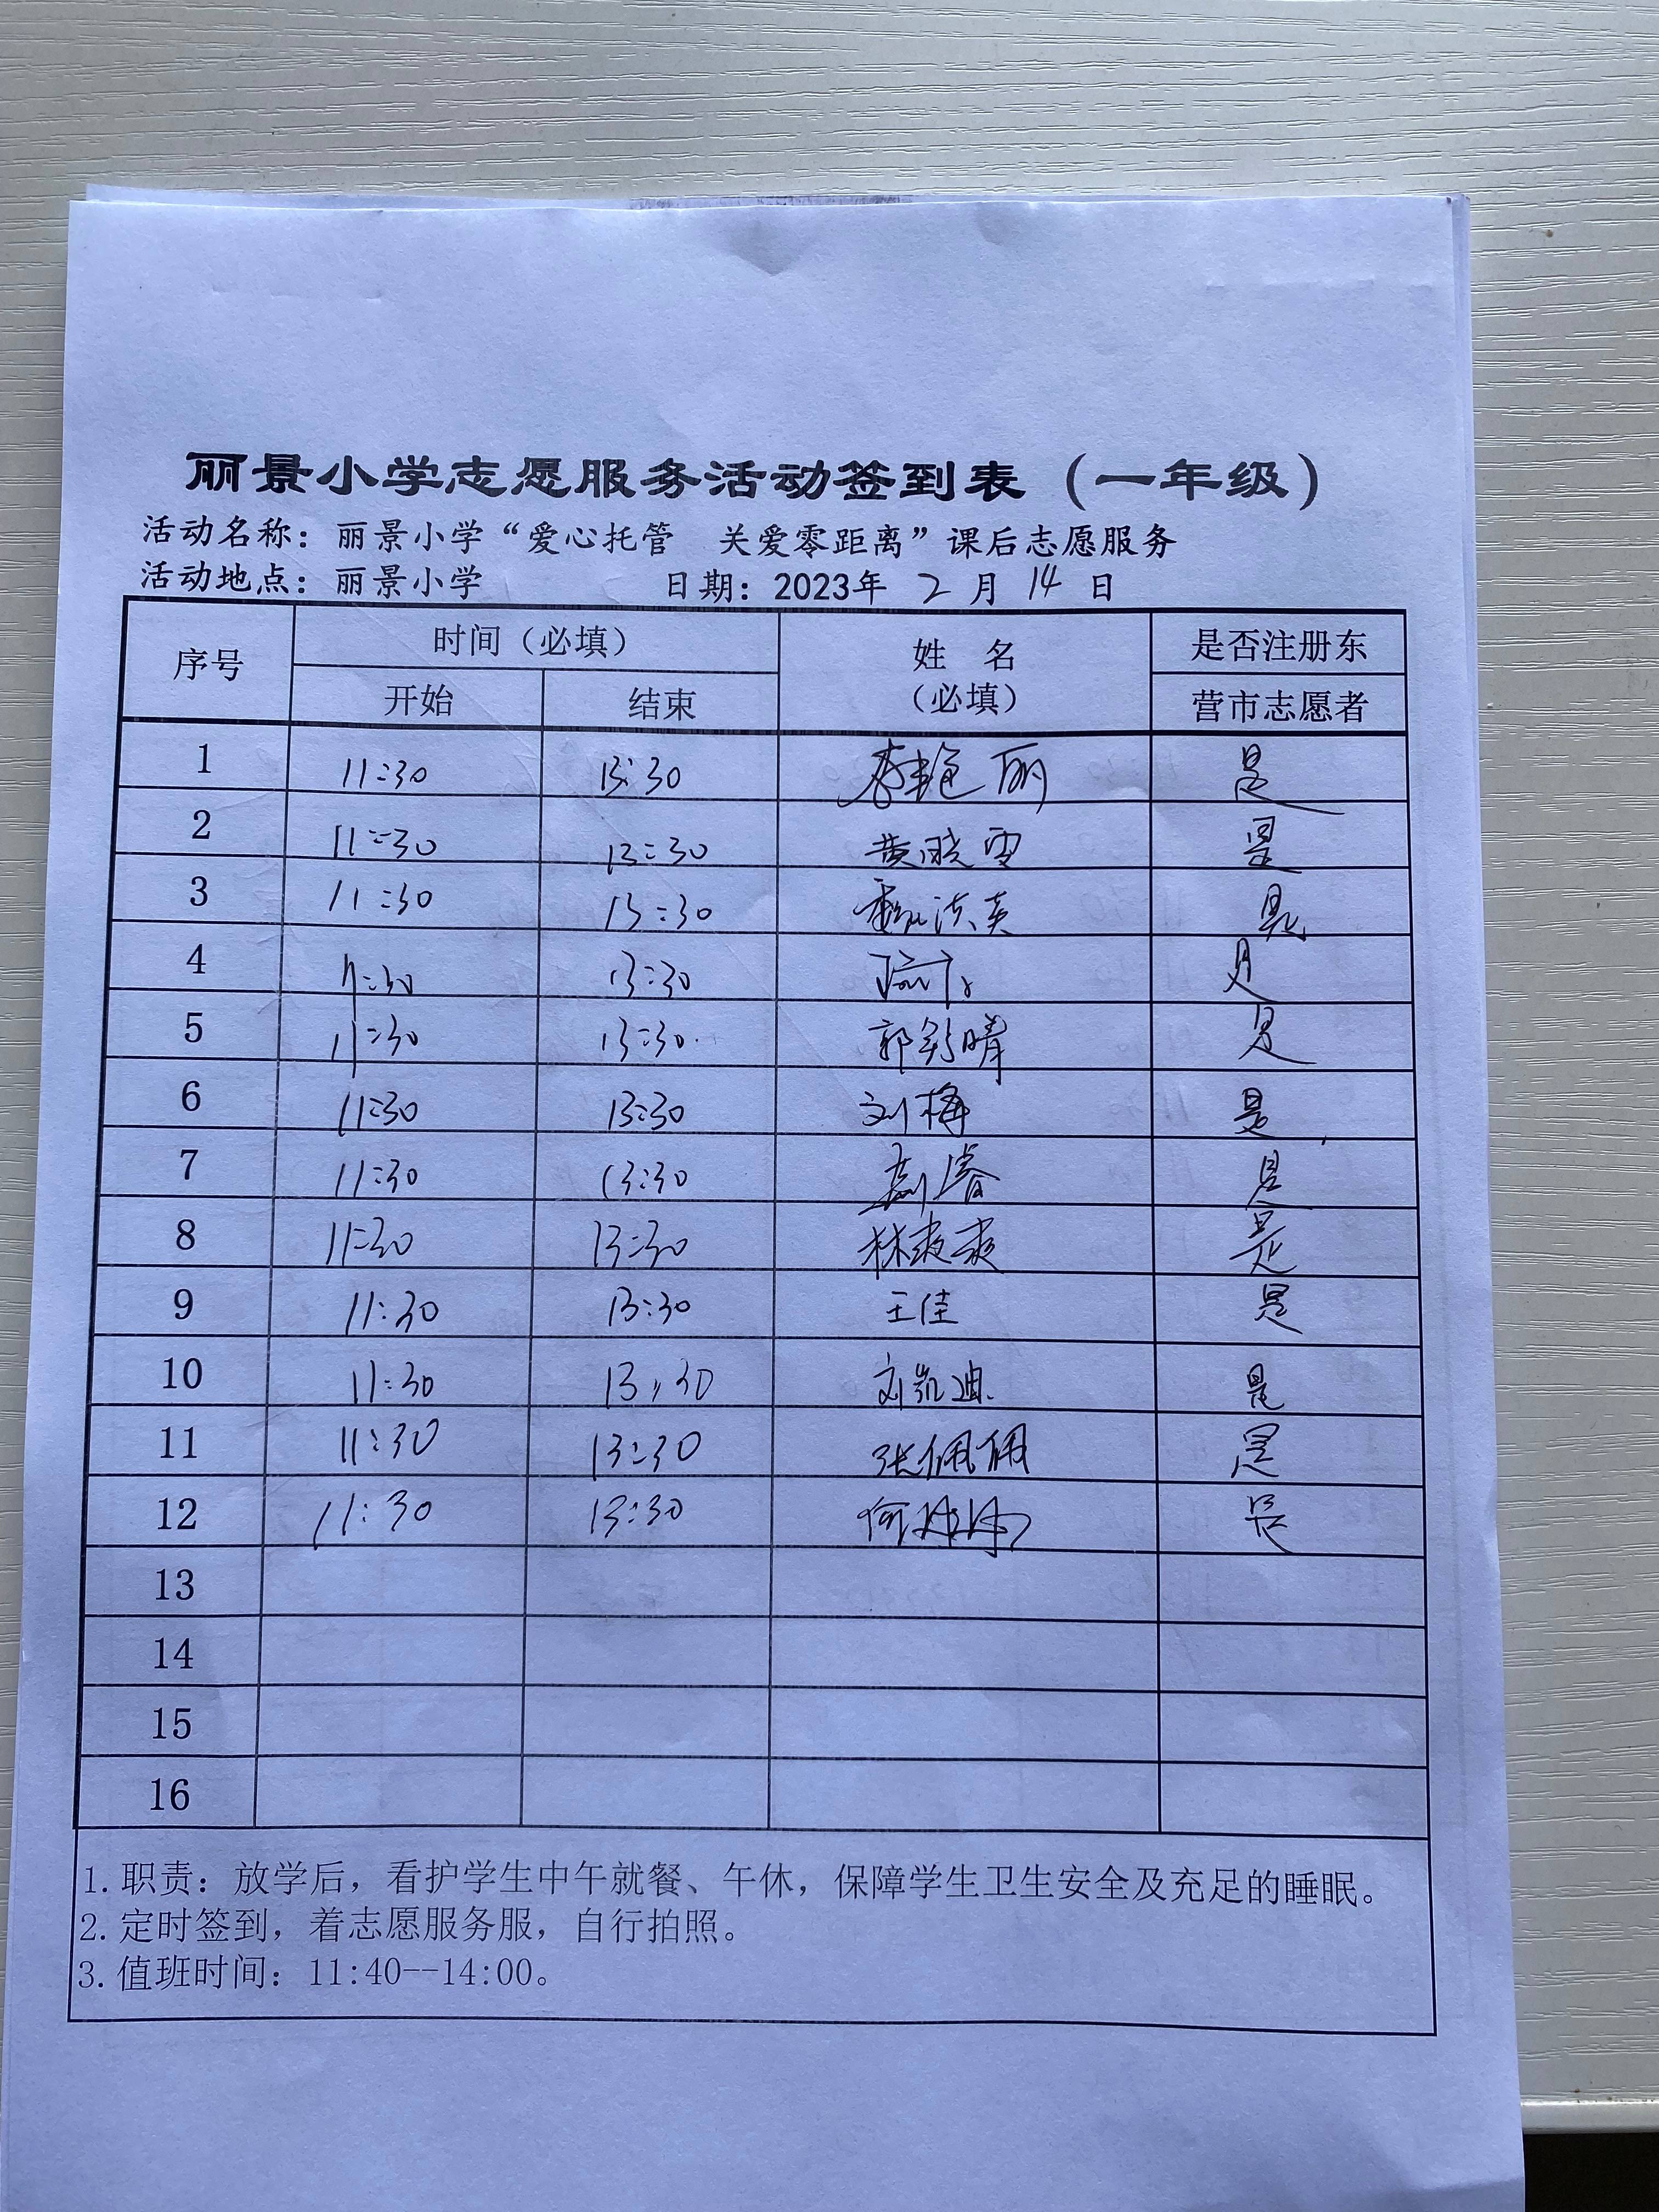 丽景小学志愿服务活动签到表（一年级）
活动名称：丽景小学“爱心托管 关爱零距离”课后志愿服务
活动地点：丽景小学 日期：2023年 2 月 14 日
序号 时间（必填） 姓 名 是否注册东
开始 结束 （必填） 营市志愿者
1 11:30 13:30 李艳丽 是
2 11:30 13:30 黄晓雪 是
3 11:30 13:30 魏洪英 是
4 11:30 13:30 是
5 11:30 13:30 郭彩晴 是
6 11:30 13:30 刘梅 是
7 11:30 13:30 是
8 11:30 13:30 林爽爽 是
9 11:30 13:30 王佳 是
10 11:30 13:30 刘凯迪 是
11 11:30 13:30 张佩佩 是
12 11:30 13:30 何 是
13
14
15
16
1.职责：放学后，看护学生中午就餐、午休，保障学生卫生安全及充足的睡眠。
2.定时签到，着志愿服务服，自行拍照。
3.值班时间：11:40--14:00。